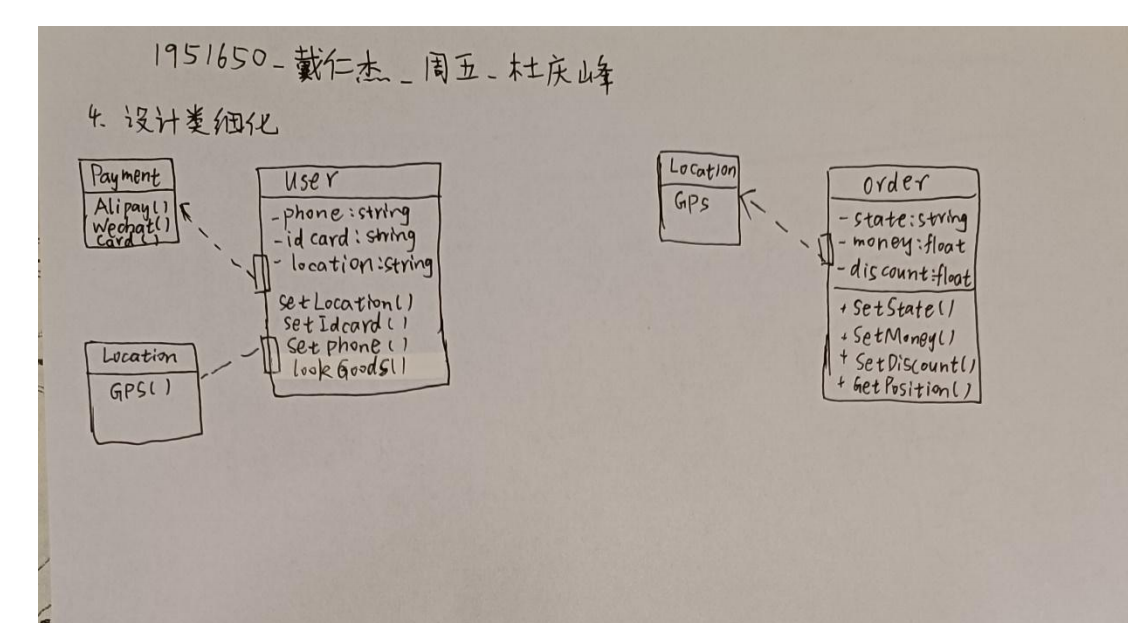 1951650_戴仁杰_周五_杜庆峰
4. 设计类细化
Payment
Alipay()
Wechat()
Card()
User
-phone:string
-id card:string
- location:string
setLocation()
setIdcard()
set phone()
lookGoods()
Location
GPS()
Location
GPS
order
-state:string
-money:float
-discount:float
+SetState()
+SetMoney()
+ SetDiscount()
+ GetPosition()